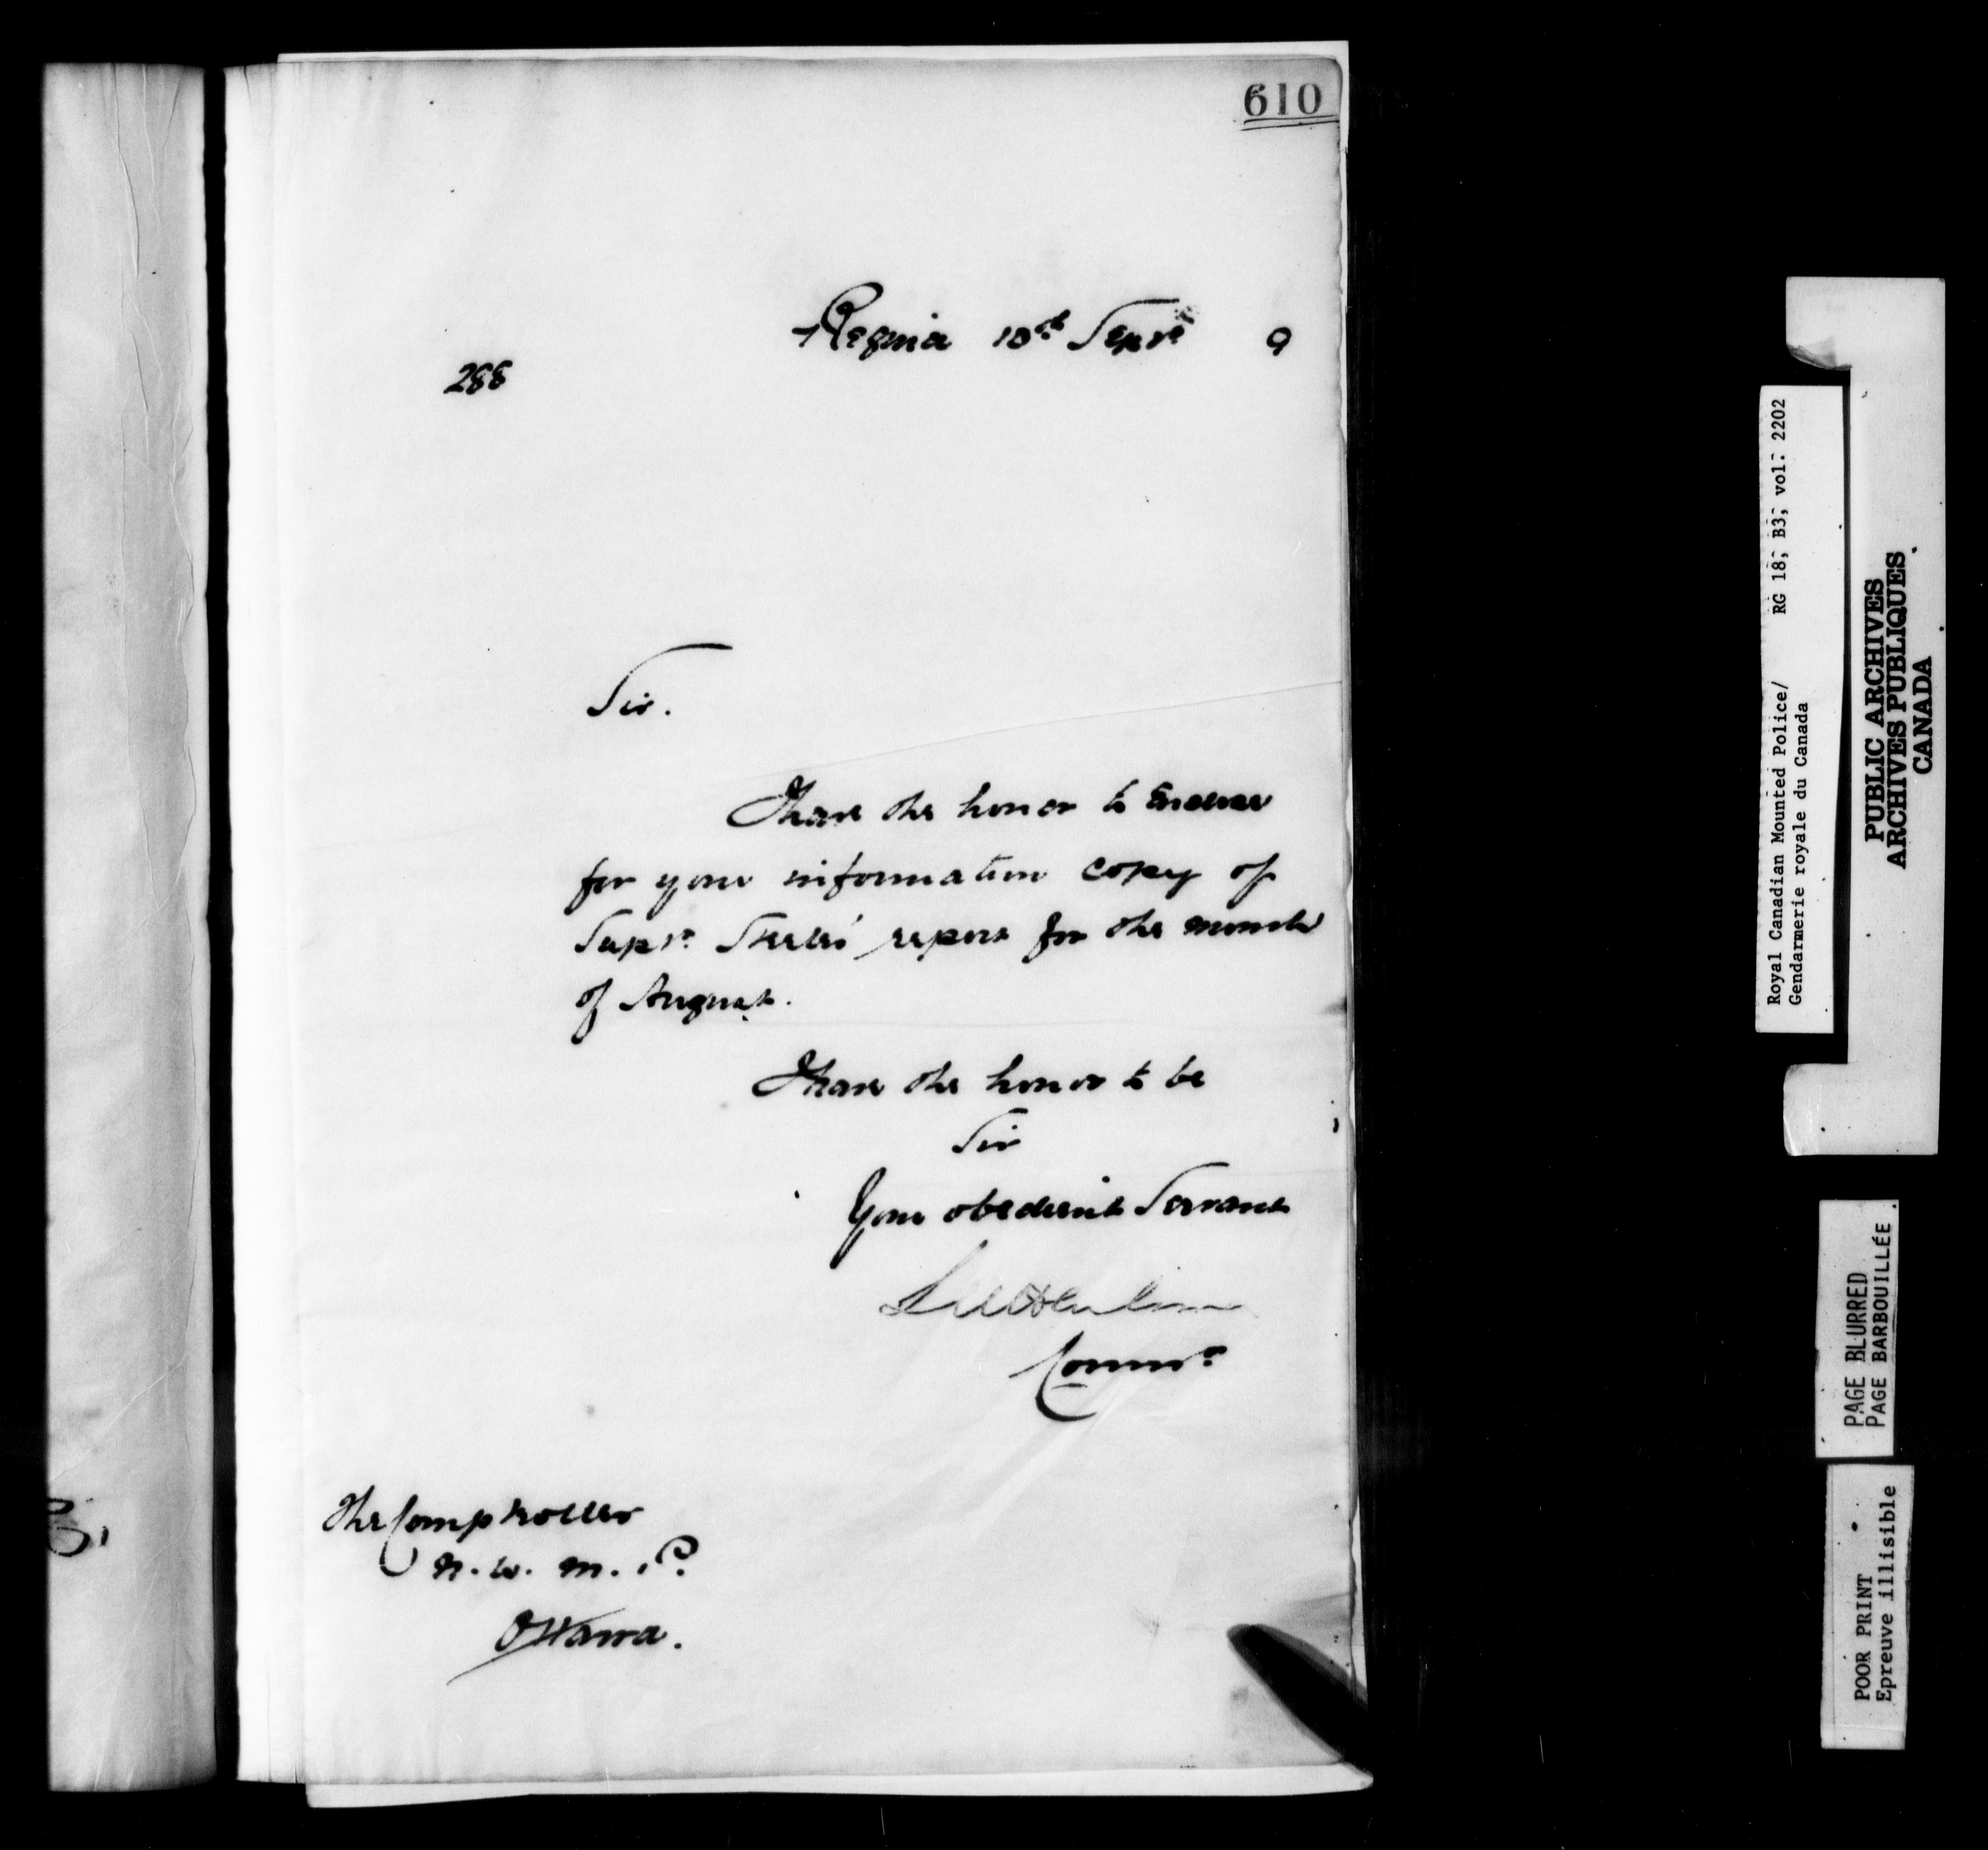 610
Regina 10th Sepr. 9
288
Sir.
I have the honor to enclose
for your information copy of
Supt. Steele's report for the month
of August.
I have the honor to be
Sir
Your obedient Servant
Commr.
The Comptroller
N. W. M. P.
Ottawa.
Royal Canadian Mounted Police/ RG 18, B3, vol. 2202
Gendarmerie royale du Canada
PUBLIC ARCHIVES
ARCHIVES PUBLIQUES
CANADA
PAGE BLURRED
PAGE BARBOUILLÉE
POOR PRINT
Epreuve illisible